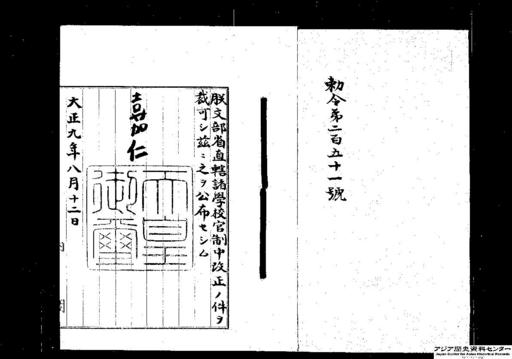 勅令第二百五十一號
朕文部省直轄諸學校官制中改正ノ件ヲ
裁可シ茲ニ之ヲ公布セシム
嘉仁
天皇
御璽
大正九年八月十二日
アジア歴史資料センター
Japan Center for Asian Historical Records